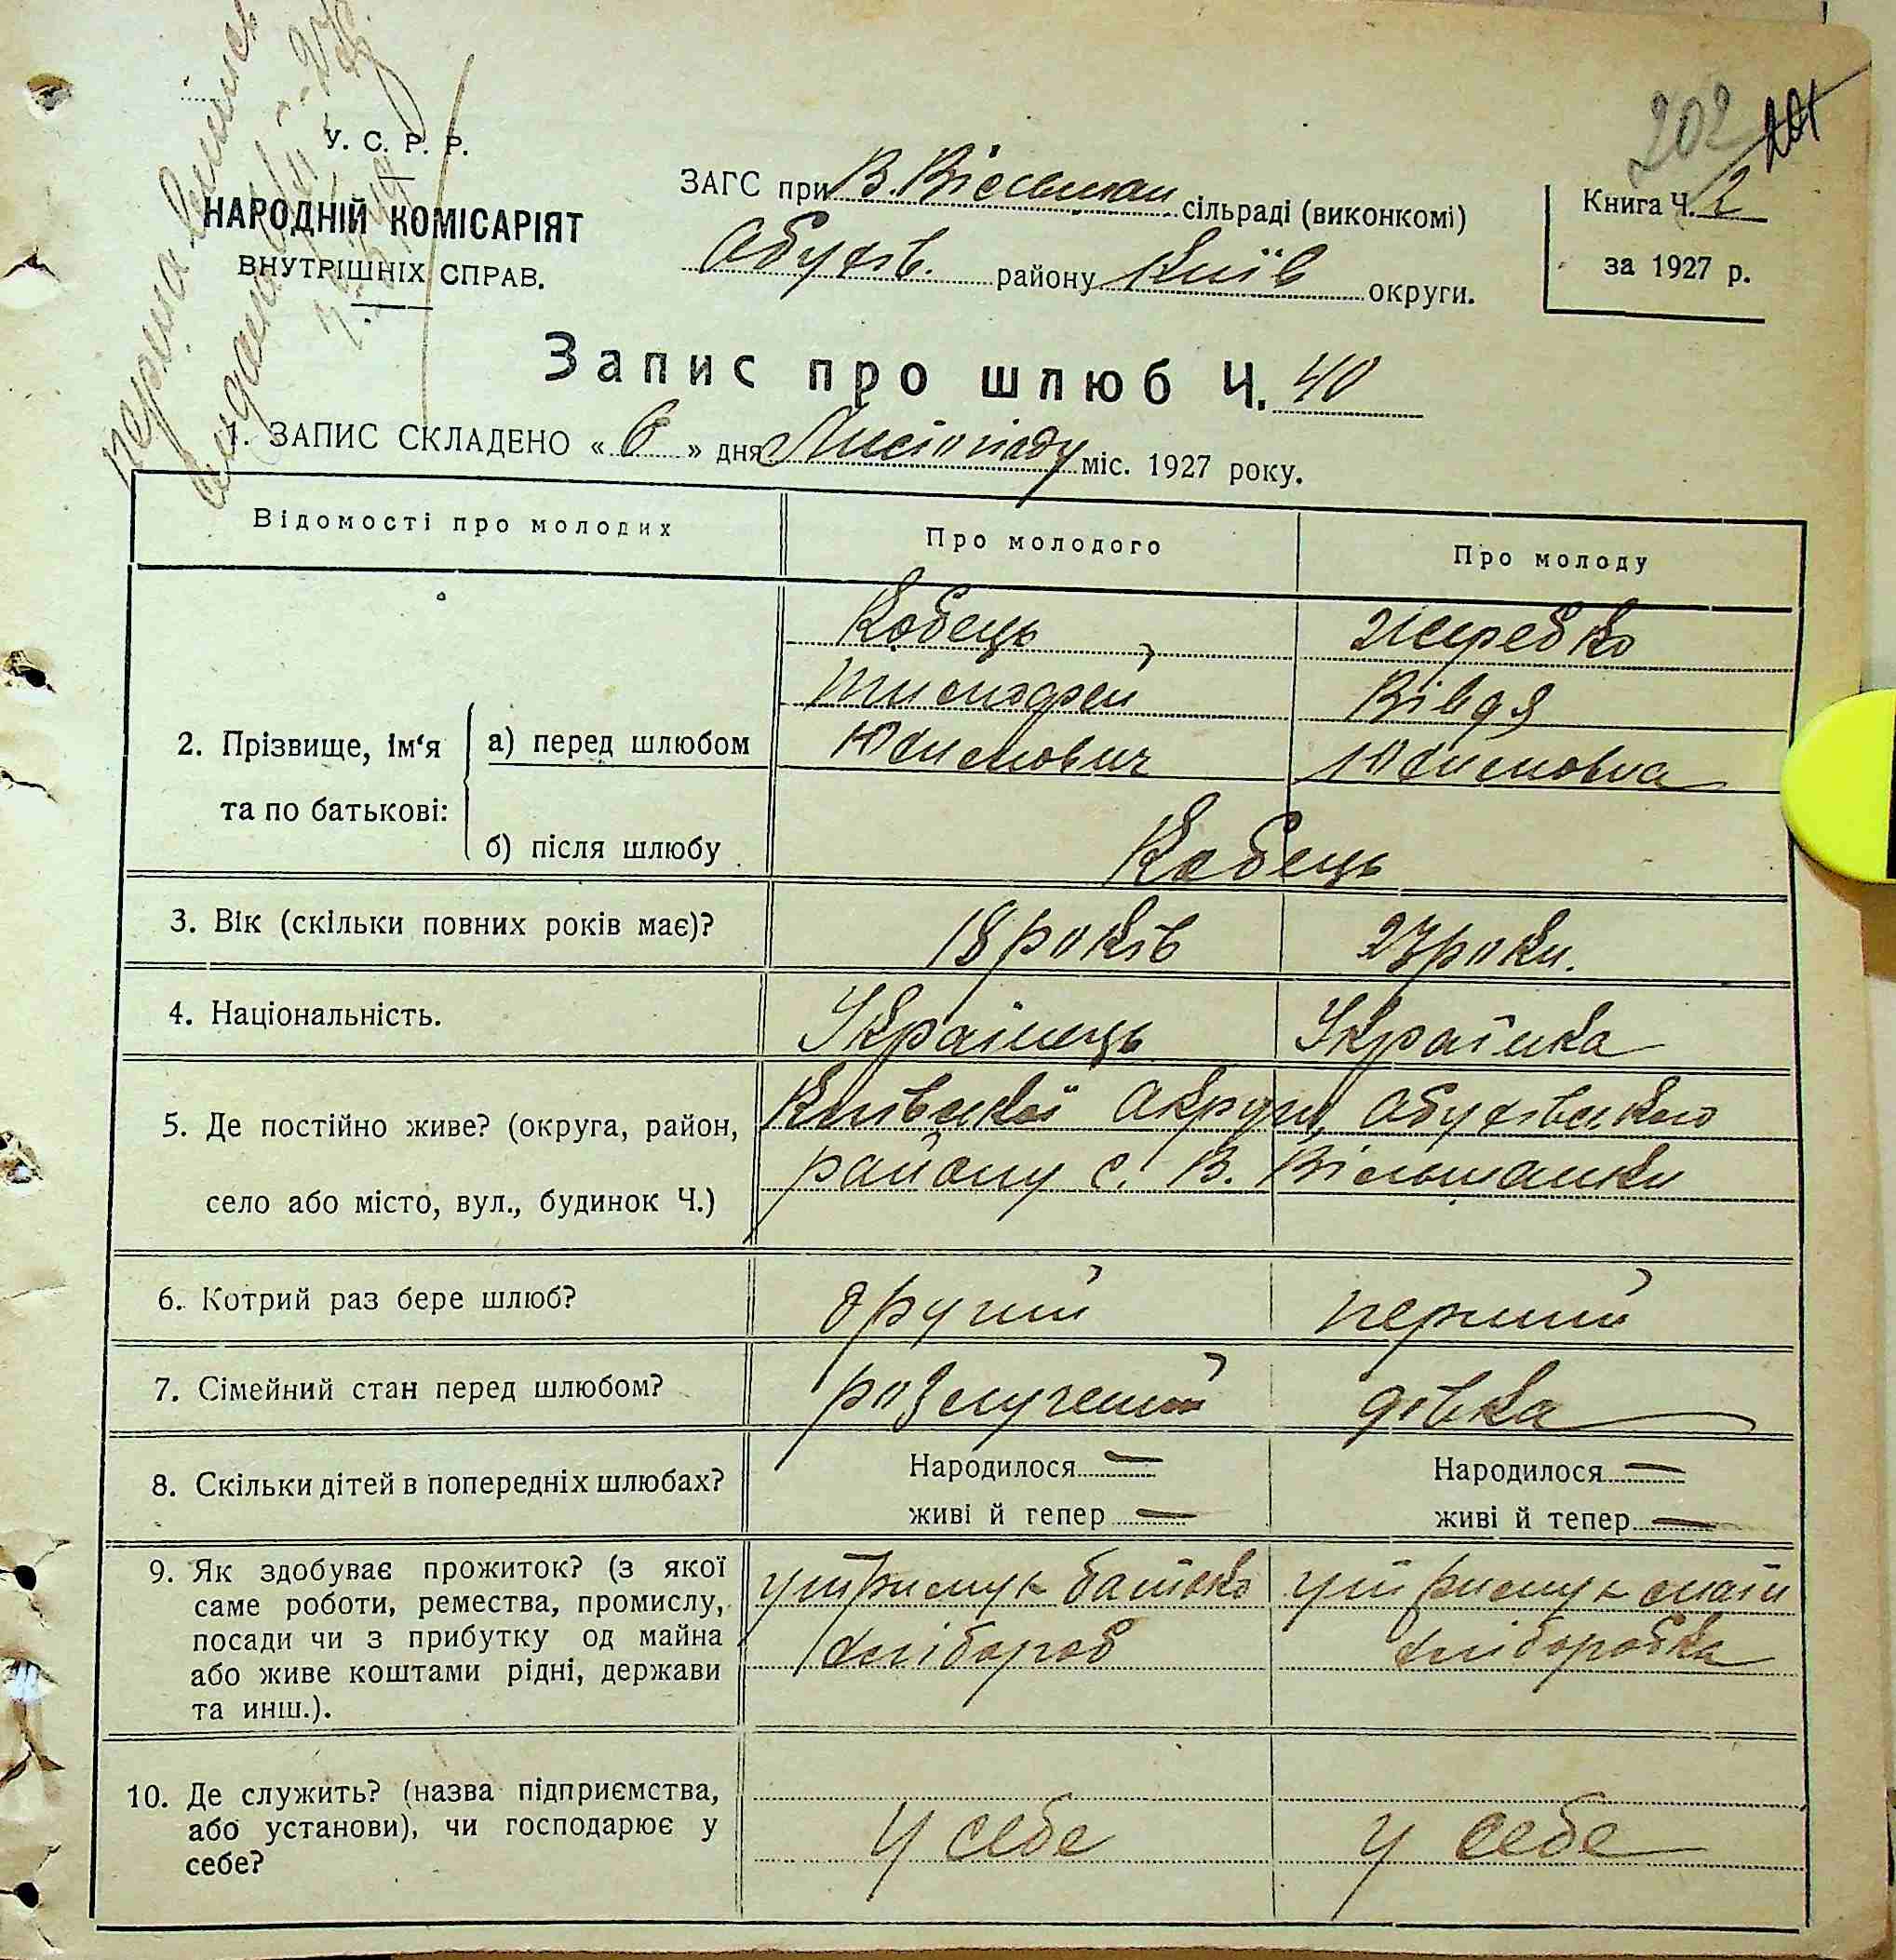 202 201
У. С. Р. Р.
НАРОДНІЙ КОМІСАРІЯТ
ВНУТРІШНІХ СПРАВ.
ЗАГС при В. Вільшан сільраді (виконкомі)
Обухів. району Київ округи.
Книга Ч. 2
за 1927 р.
Запис про шлюб Ч. 40
1. ЗАПИС СКЛАДЕНО « 6 » дня Листопаду міс. 1927 року.
Відомості про молодих Про молодого Про молоду
2. Прізвище, ім‘я та по батькові:
а) перед шлюбом
Кобець Жеребко
Тимофей Вівдя
Юхимович Юхимовна
б) після шлюбу Кобець
3. Вік (скільки повних років має)? 18 років 23 роки.
4. Національність. Українець Українка
5. Де постійно живе? (округа, район, Київської Округи, Обухівського
село або місто, вул., будинок Ч.) району с. В. Вільшанки
6. Котрий раз бере шлюб? другий перший
7. Сімейний стан перед шлюбом? розлучений дівка
8. Скільки дітей в попередніх шлюбах? Народилося — Народилося —
живі й тепер — живі й тепер —
9. Як здобуває прожиток? (з якої
саме роботи, ремества, промислу,
посади чи з прибутку од майна
або живе коштами рідні, держави
та инш.).
утримує батько утримує мати
хлібороб хліборобка
10. Де служить? (назва підприємства,
або установи), чи господарює у
себе?
у себе у себе